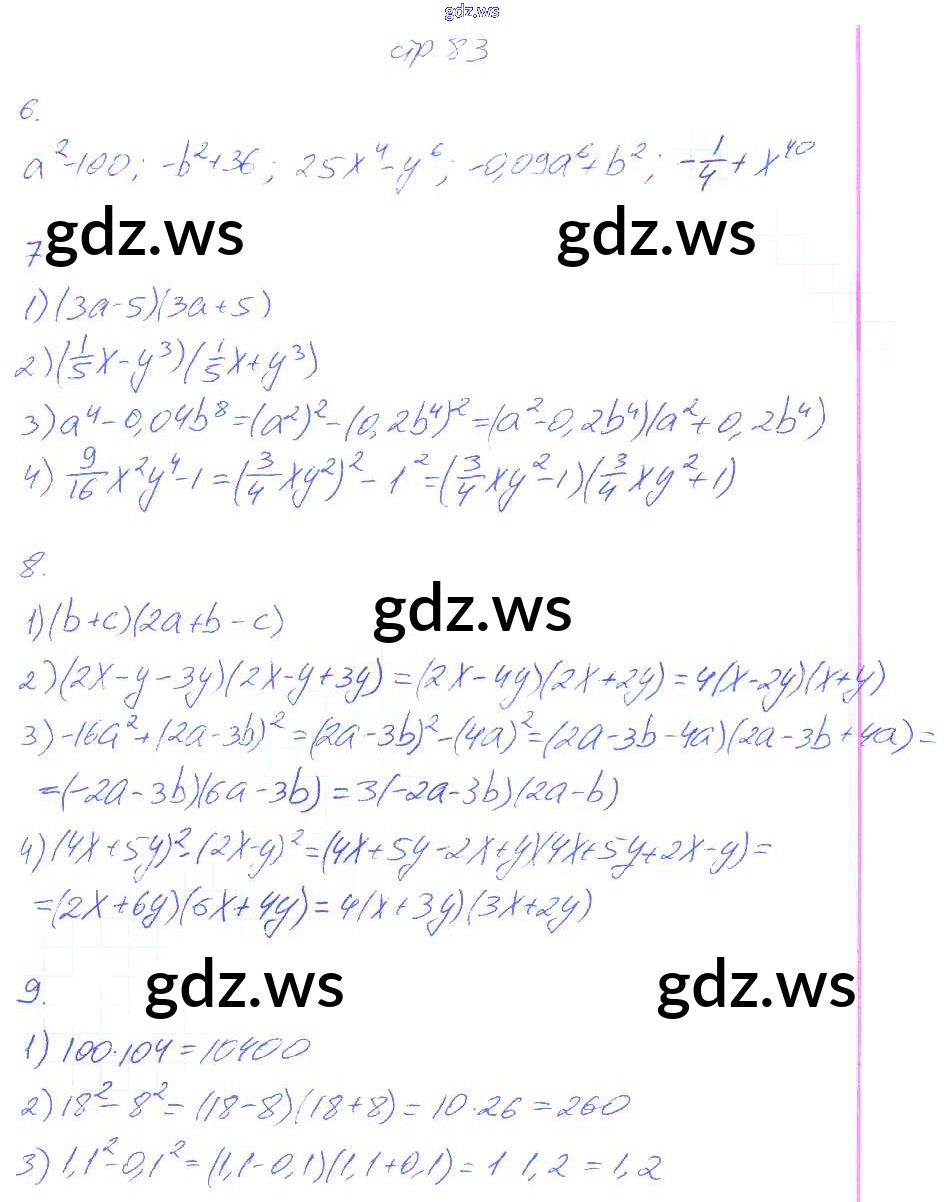 gdz.ws
стр. 83
6.
a²-100; -b²+36; 25x⁴-y⁶; -0,09a⁶+b²; -1/4+x⁴⁰
gdz.ws gdz.ws
7
1) (3a-5)(3a+5)
2) (1/5x-y³)(1/5x+y³)
3) a⁴-0,04b⁸=(a²)²-(0,2b⁴)²=(a²-0,2b⁴)(a²+0,2b⁴)
4) 9/16x²y⁴-1=(3/4xy²)²-1²=(3/4xy²-1)(3/4xy²+1)
8.
gdz.ws
1) (b+c)(2a+b-c)
2) (2x-y-3y)(2x-y+3y)=(2x-4y)(2x+2y)=4(x-2y)(x+y)
3) -16a²+(2a-3b)²=(2a-3b)²-(4a)²=(2a-3b-4a)(2a-3b+4a)=
=(-2a-3b)(6a-3b)=3(-2a-3b)(2a-b)
4) (4x+5y)²-(2x-y)²=(4x+5y-2x+y)(4x+5y+2x-y)=
=(2x+6y)(6x+4y)=4(x+3y)(3x+2y)
gdz.ws gdz.ws
9.
1) 100·104=10400
2) 18²-8²=(18-8)(18+8)=10·26=260
3) 1,1²-0,1²=(1,1-0,1)(1,1+0,1)=1 1,2=1,2